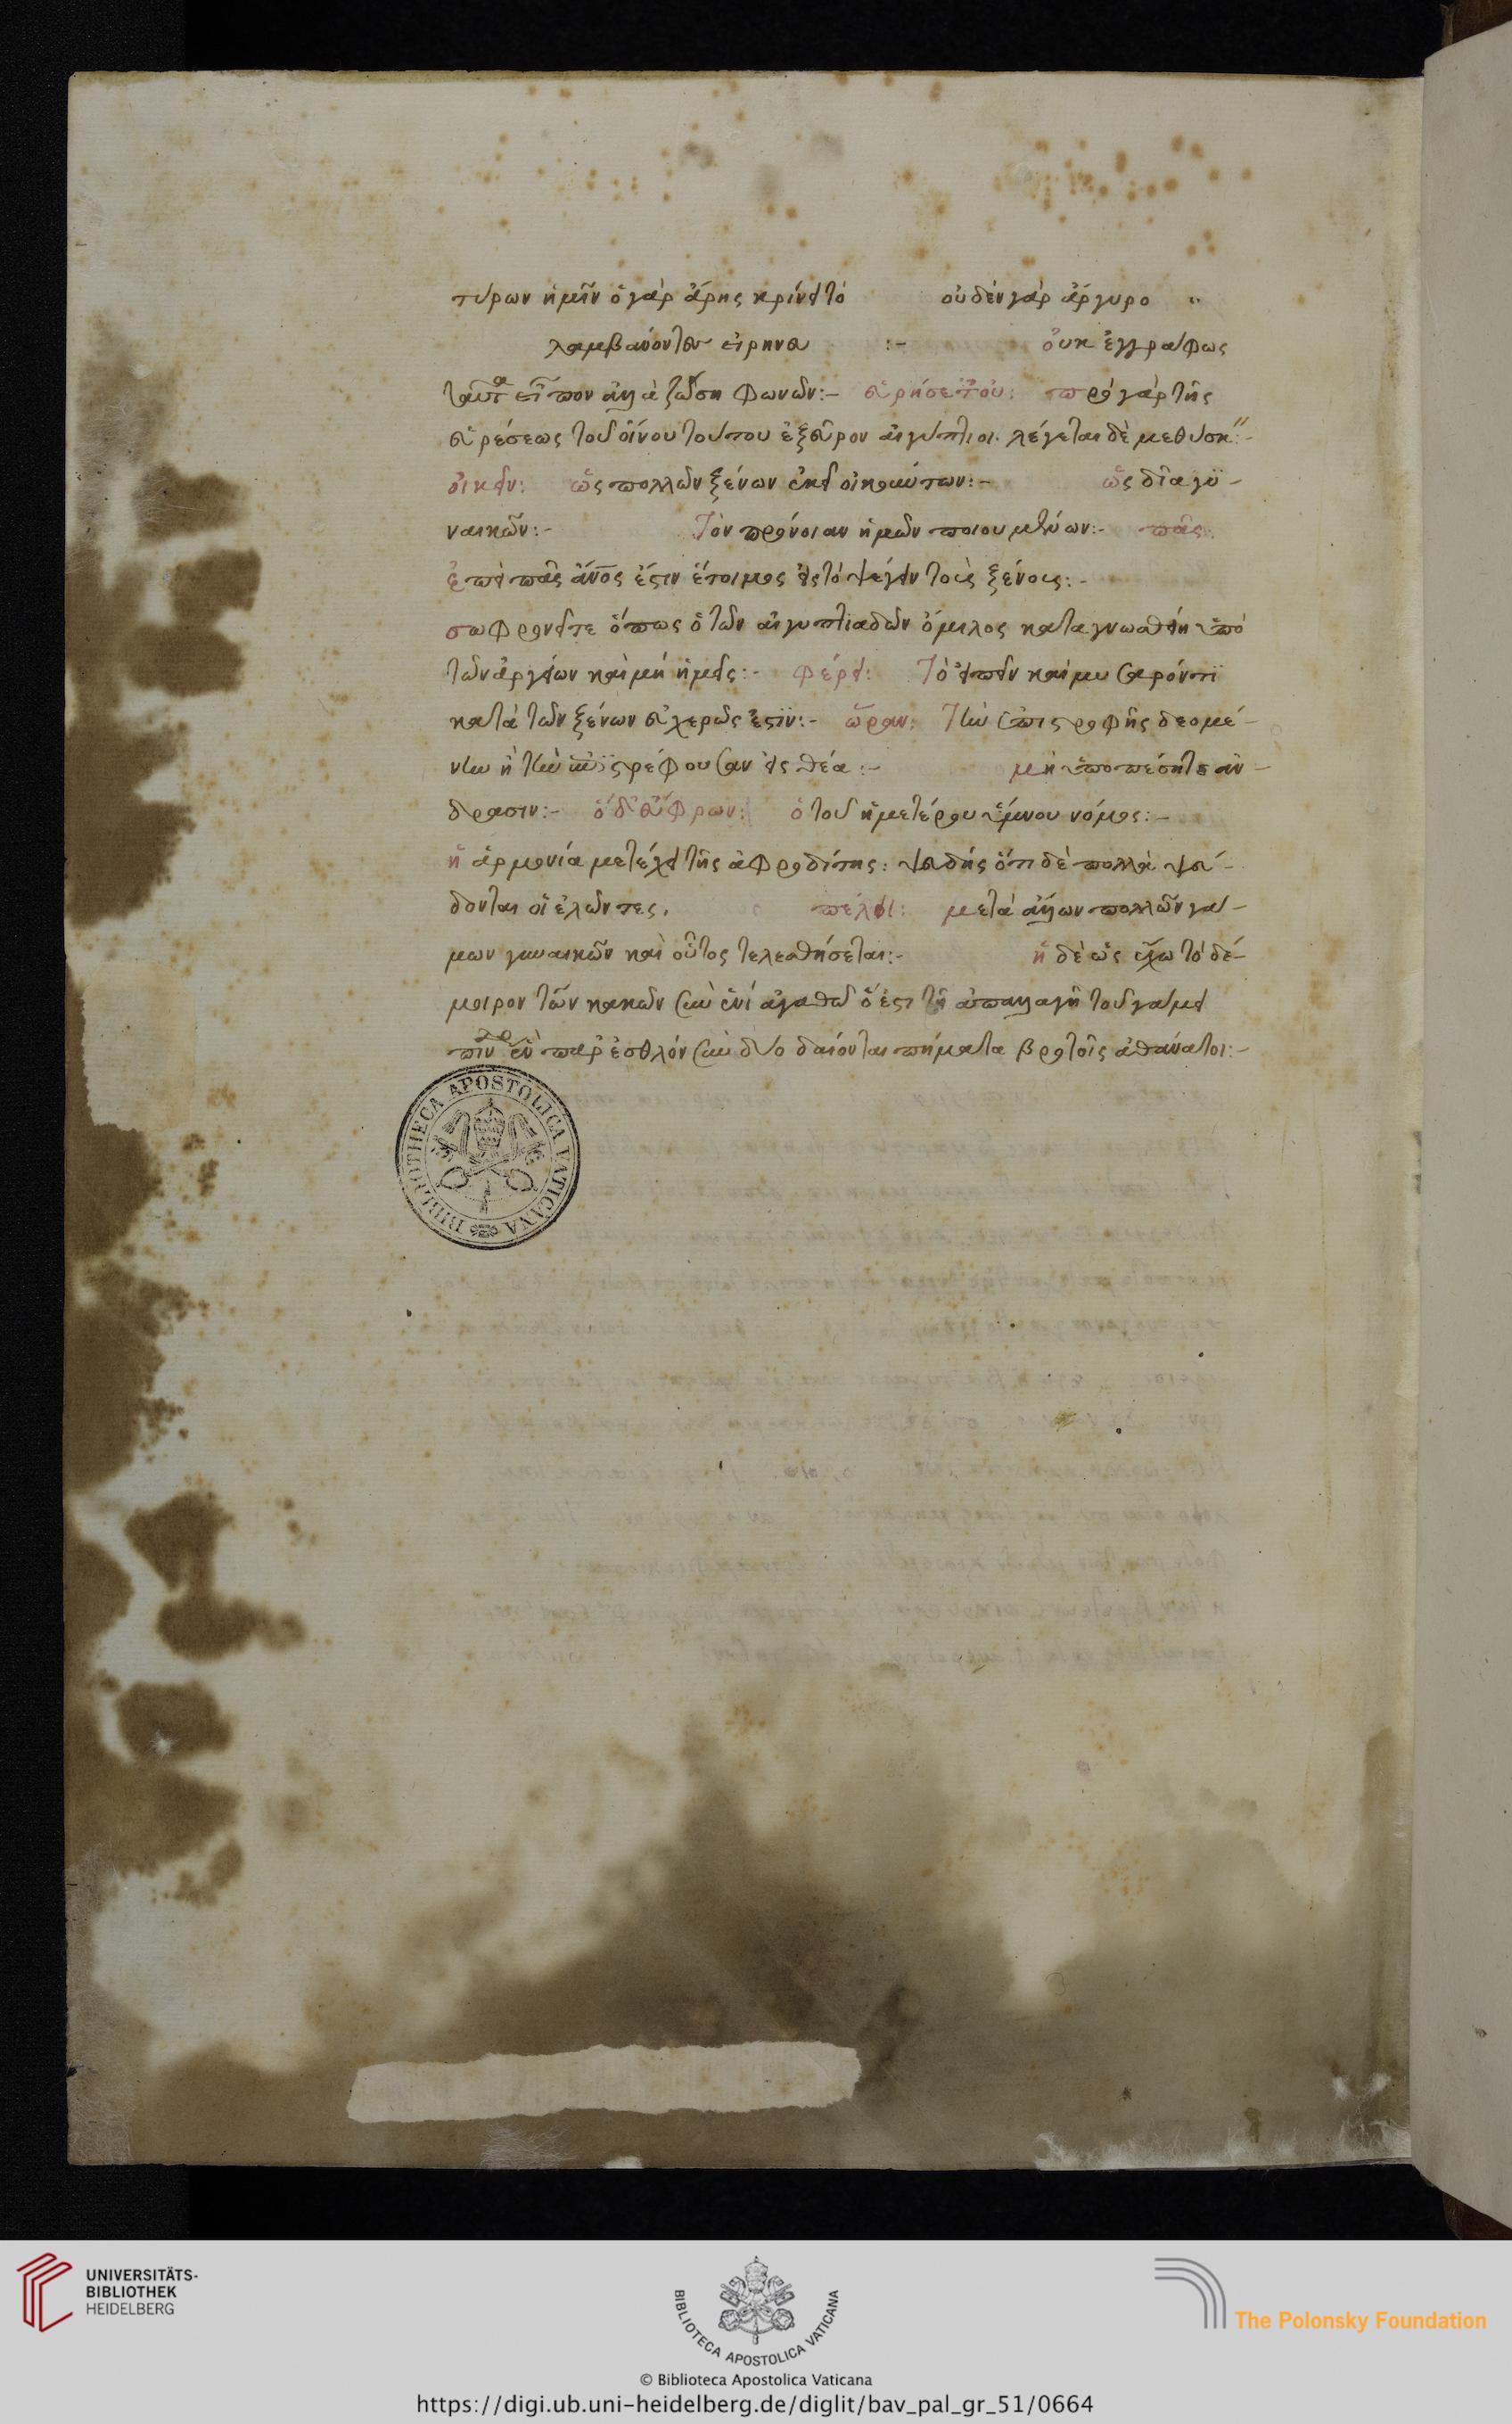 τύρων ἡμῖν ὁ γὰρ ἄρης κρίνει τὸ οὐδὲν γὰρ ἄργυρο
λαμβανόντων εἰρηνευ :- οὐκ ἐγγράφως
ταῦτα εἶπον ἀλλὰ ζώση φωνῶν:- εὑρήσετ οὐ: πρὸ γὰρ τῆς
εὑρέσεως τοῦ οἴνου τούτου ἐξεῦρον αἰγύπτιοι. λέγεται δὲ
οἰκεῖν: ὡς πολλῶν ξένων ἐκεῖ οἰκούντων:- ὡς διὰ γυ-
ναικῶν:- τὸν πρόνοιαν ἡμῶν ποιουμένων:- πᾶς:
ἐπεὶ πᾶς ἄνος ἐστιν ἕτοιμος εἰς τὸ ψέγειν τοὺς ξένους:-
σωφρονεῖτε ὅπως ὁ τῶν αἰγυπτιαδῶν ὅμιλος καταγνωσθείη ὑπὸ
τῶν ἀργείων καὶ μὴ ἡμεῖς:- φέρει: τὸ εἰπεῖν καὶ
κατὰ τῶν ξένων εὐχερῶς ἐστϊν:- ὥραν: τὴν ἐπιστροφῆς δεομέ-
νην ἢ τὴν ἐπϊστρέφουσαν εἰς θέα:- μὴ ὑποπέσητε ἀν-
δρασιν:- ὅδ' εὔφρων: ὁ τοῦ ἡμετέρου ὕμνου νόμος:-
ἡ ἁρμονία μετέχει τῆς ἀφροδίτης: ψευδὴς ὅτι δὲ πολλὰ ψεύ-
δονται οἱ ἐλῶντες. πέλοι: μετὰ ἄλλων πολλῶν γά-
μων γυναικῶν καὶ οὗτος τελεσθήσεται:- ἡ δὲ ὡς ἔχω τὸ δέ-
μοιρον τῶν κακῶν σὺν ἑνὶ ἀγαθῶ ὅ ἐστι τῆ ἀπαλλαγῆ τοῦ γάμου
ἓν παρ' ἐσθλὸν σὺν δύο δαίονται πήματα βροτοῖς ἀθάνατοι:-
BIBLIOTHECA APOSTOLICA VATICANA
UNIVERSITÄTS-
BIBLIOTHEK
HEIDELBERG
BIBLIOTECA APOSTOLICA VATICANA
The Polonsky Foundation
© Biblioteca Apostolica Vaticana
https://digi.ub.uni-heidelberg.de/diglit/bav_pal_gr_51/0664